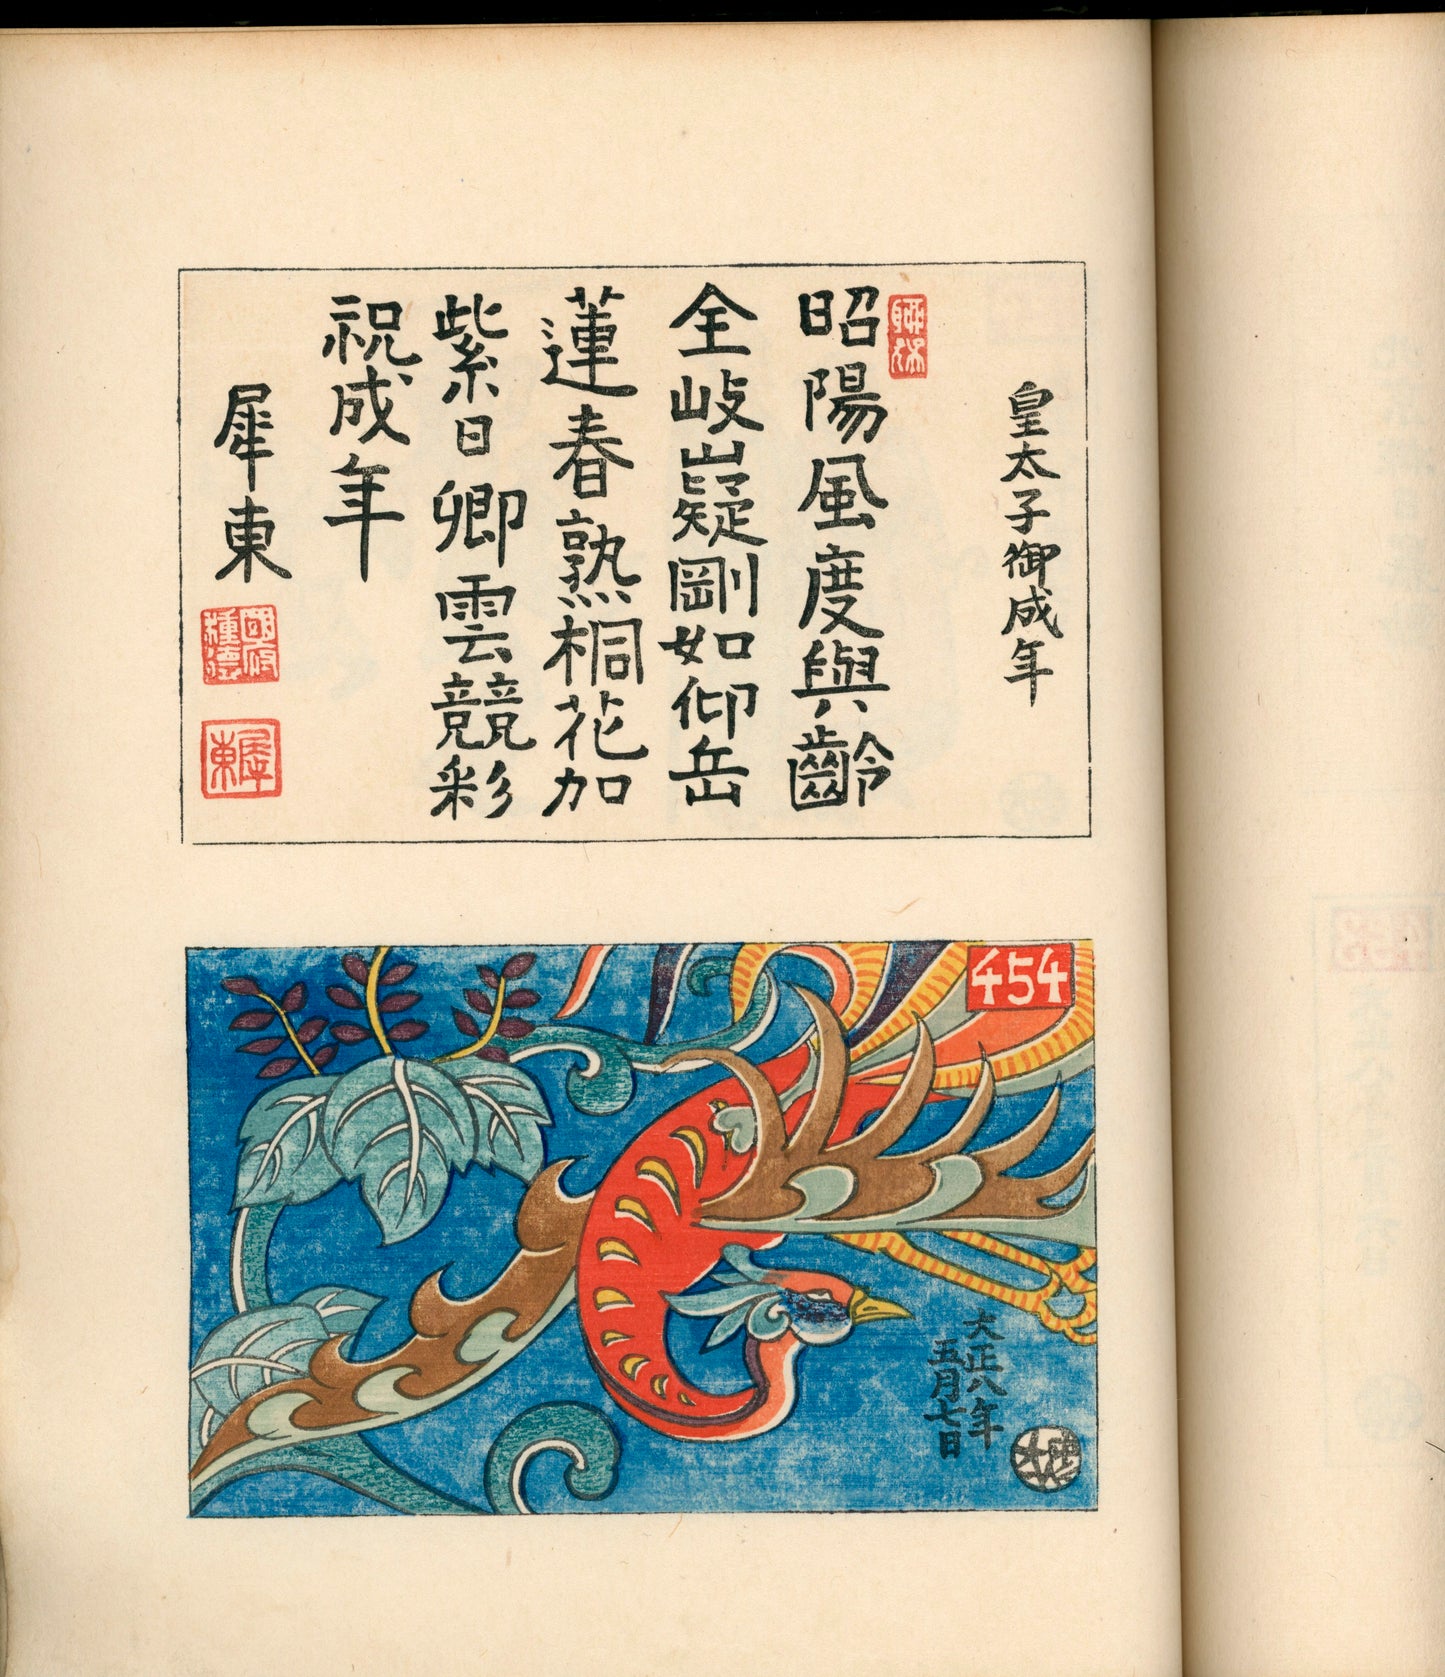 皇太子御成年
昭陽風度與齡
全岐嶷剛如仰岳
蓮春熟桐花加
紫日卿雲競彩
祝成年
犀東
國府
種德
犀東
454
大正八年
五月七日